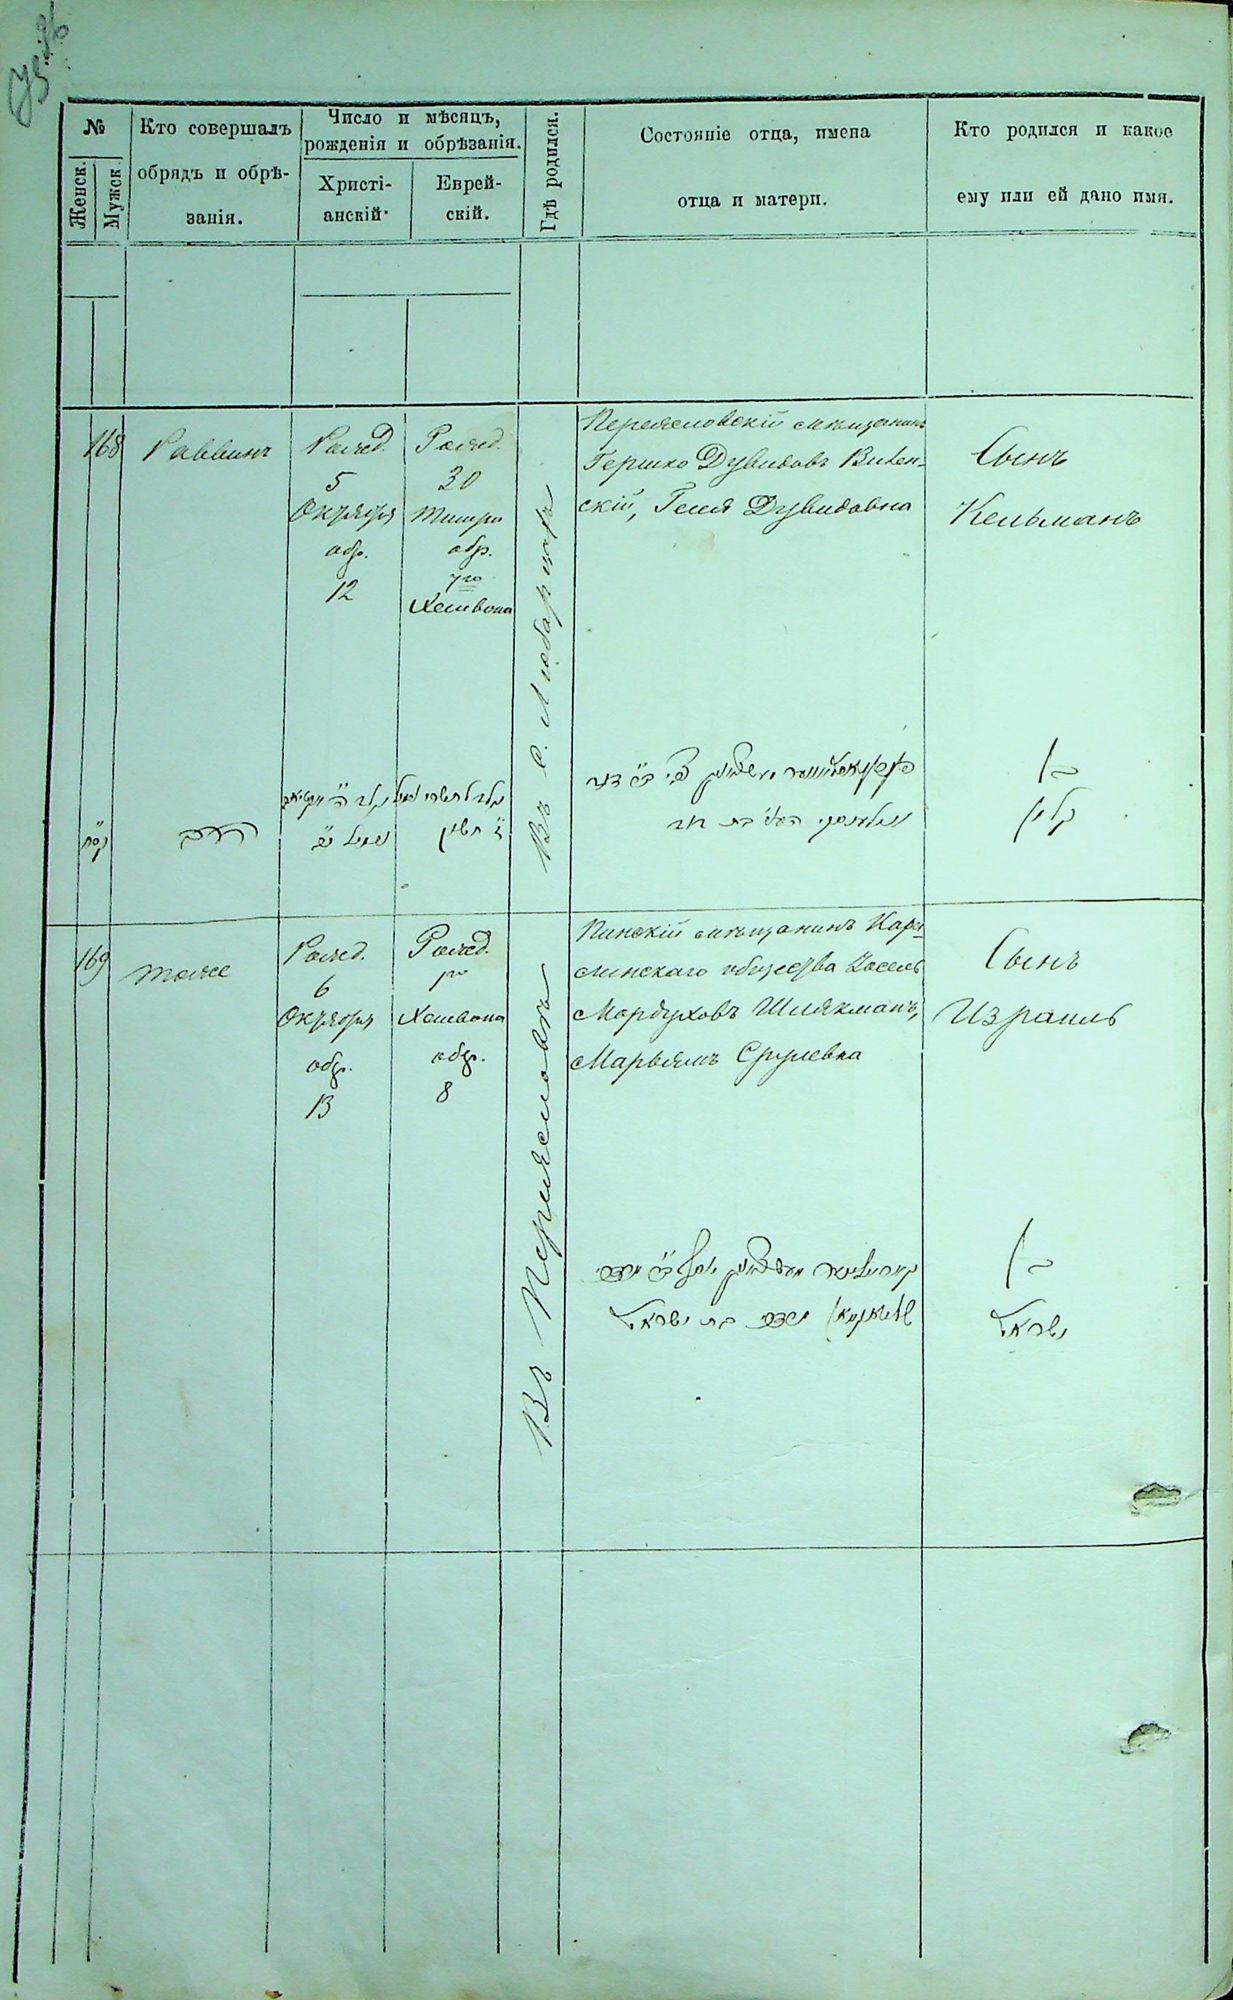 96
№
Женск.
Мужск.
Кто совершалъ
обрядъ и обрѣ-
занія.
Число и мѣсяцъ,
рожденія и обрѣзанія.
Христі-
анскій
Еврей-
скій.
Гдѣ родился.
Состояніе отца, имена
отца и матери.
Кто родился и какое
ему или ей дано имя.
168
Раввинъ
Рожд.
5
Октября
обр.
12
Рожд.
30
Тишри
обр.
7го
Хешвона
Въ с.
Переясловскій мѣщанинъ
Гершко Дувидовъ Вилен-
скій, Геня Дувидовна
Сынъ
Кельманъ
קסח
הרב
ז׳ חשון
בן
קלמן
169
тоже
Рожд.
6
Октября
обр.
13
Рожд.
1го
Хешвона
обр.
8
Въ Переясловѣ
Пинскій мѣщанинъ Кар-
линскаго общества Іосель
Мордуховъ Шляхманъ,
Марьямъ Срулевна
Сынъ
Израиль
בת ישראל
בן
ישראל